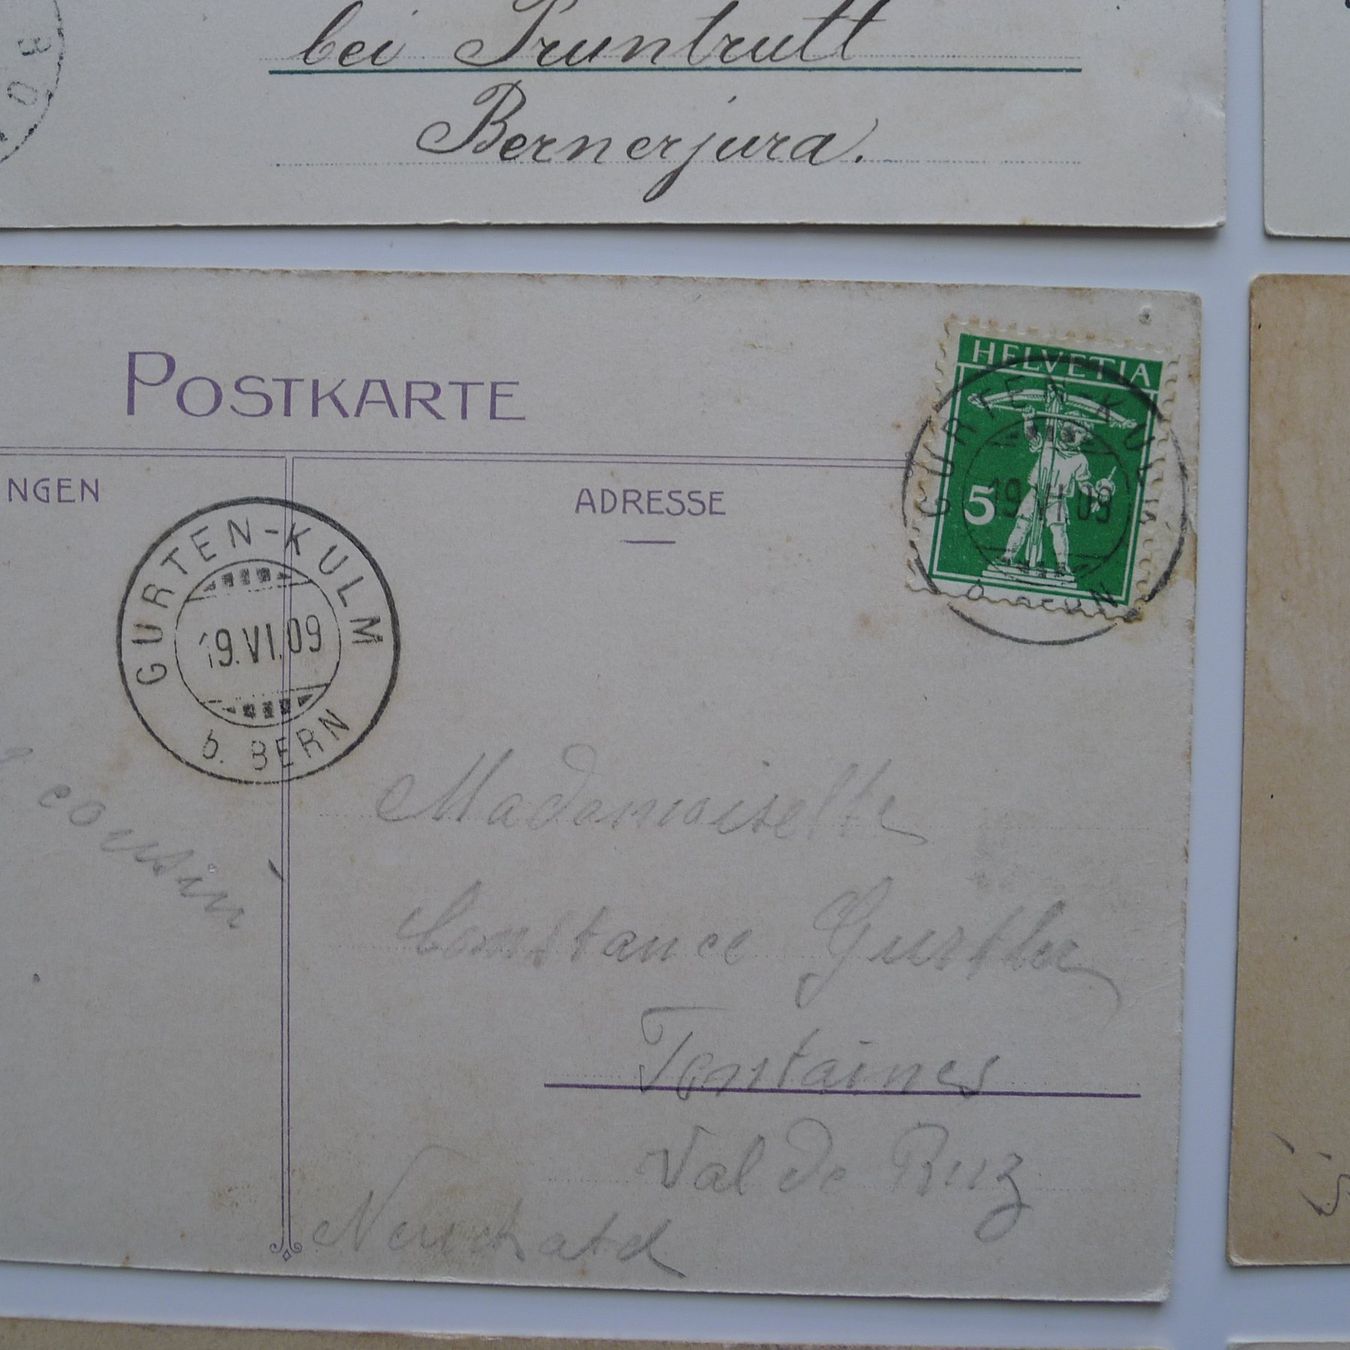 bei Pruntrutt
Bernerjura.
POSTKARTE
HELVETIA
5
GURTEN-KULM
19.VI.09
b. BERN
NGEN
ADRESSE
GURTEN-KULM
19.VI.09
b. BERN
cousin
Mademoiselle
Constance Gurtler
Fontaines
Val de Ruz
Neuchatel